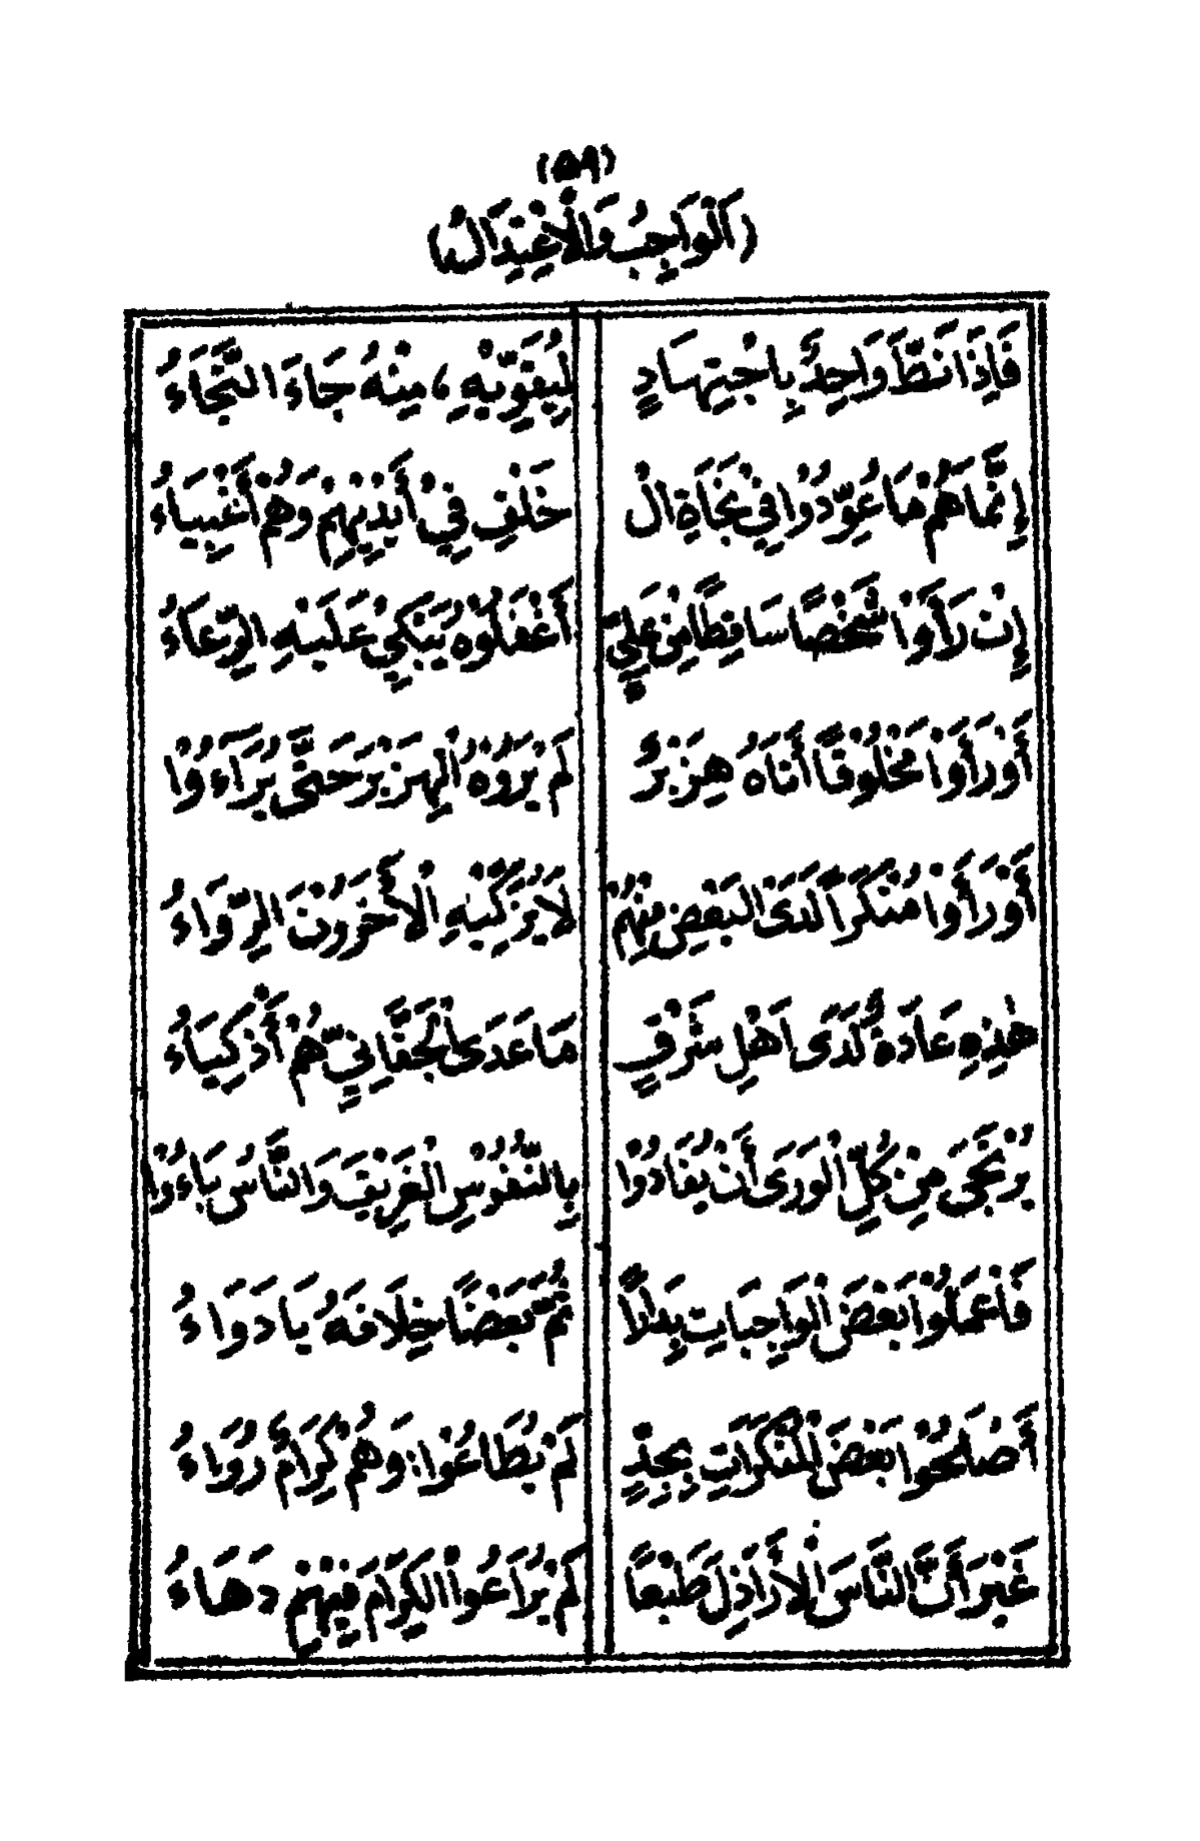 (٥٩)
(اَلْوَاجِبُ وَالْاِعْتِدَالُ)
فَاِذَا نَطَّ وَاحِدٌ بِاجْتِهَادٍ لِيُقَوِّيْهِ، مِنْهُ جَاءَ النَّجَاءُ
إِنَّمَا هُمْ مَا عُوِّدُوْا فِيْ نَجَاةِ الْ خَلْفِ فِيْ أَيْدِيْهِمْ وَهُمْ أَغْبِيَاءُ
إِنْ رَأَوْا شَخْصًا سَاقِطًا مِنْ عَلِيٍّ أَغْفَلُوْهُ يَبْكِيْ عَلَيْهِ الرِّعَاءُ
أَوْ رَأَوْا مَخْلُوْقًا أَتَاهُ هِزَبْرٌ لَمْ يَرَوْهُ الْهِزَبْرَ حَتَّى يُرَاءَوُا
أَوْ رَأَوْا مُنْكَرًا لَدَى الْبَعْضِ مِنْهُمْ لَا يُزَكِّيْهِ الْأَخَرُوْنَ الرِّوَاءُ
هٰذِهِ عَادَةٌ لَدَى اَهْلِ شَرْقٍ مَا عَدَى الْجَفَّانِيِّ هُمْ أَذْكِيَاءُ
يُرْتَجَى مِنْ كُلِّ الْوَرَى أَنْ يُفَادُوْا بِالنُّفُوْسِ الْغَرِيْقَ وَالنَّاسُ بَاءُوْا
فَاعْمَلُوْا بَعْضَ الْوَاجِبَاتِ بِدَالًا ثُمَّ بَعْضًا خِلَافَهُ يَا دَوَاءُ
أَصْلِحُوْا بَعْضَ الْمُنْكَرَاتِ بِجِدٍّ لَمْ يُطَاعُوْا: وَهُمْ كِرَامٌ رُوَاءُ
غَيْرَ أَنَّ النَّاسَ الْأَرَاذِلَ طَبْعًا لَمْ يُرَاعُوا الْكِرَامَ فِيْهِمْ دَهَاءُ